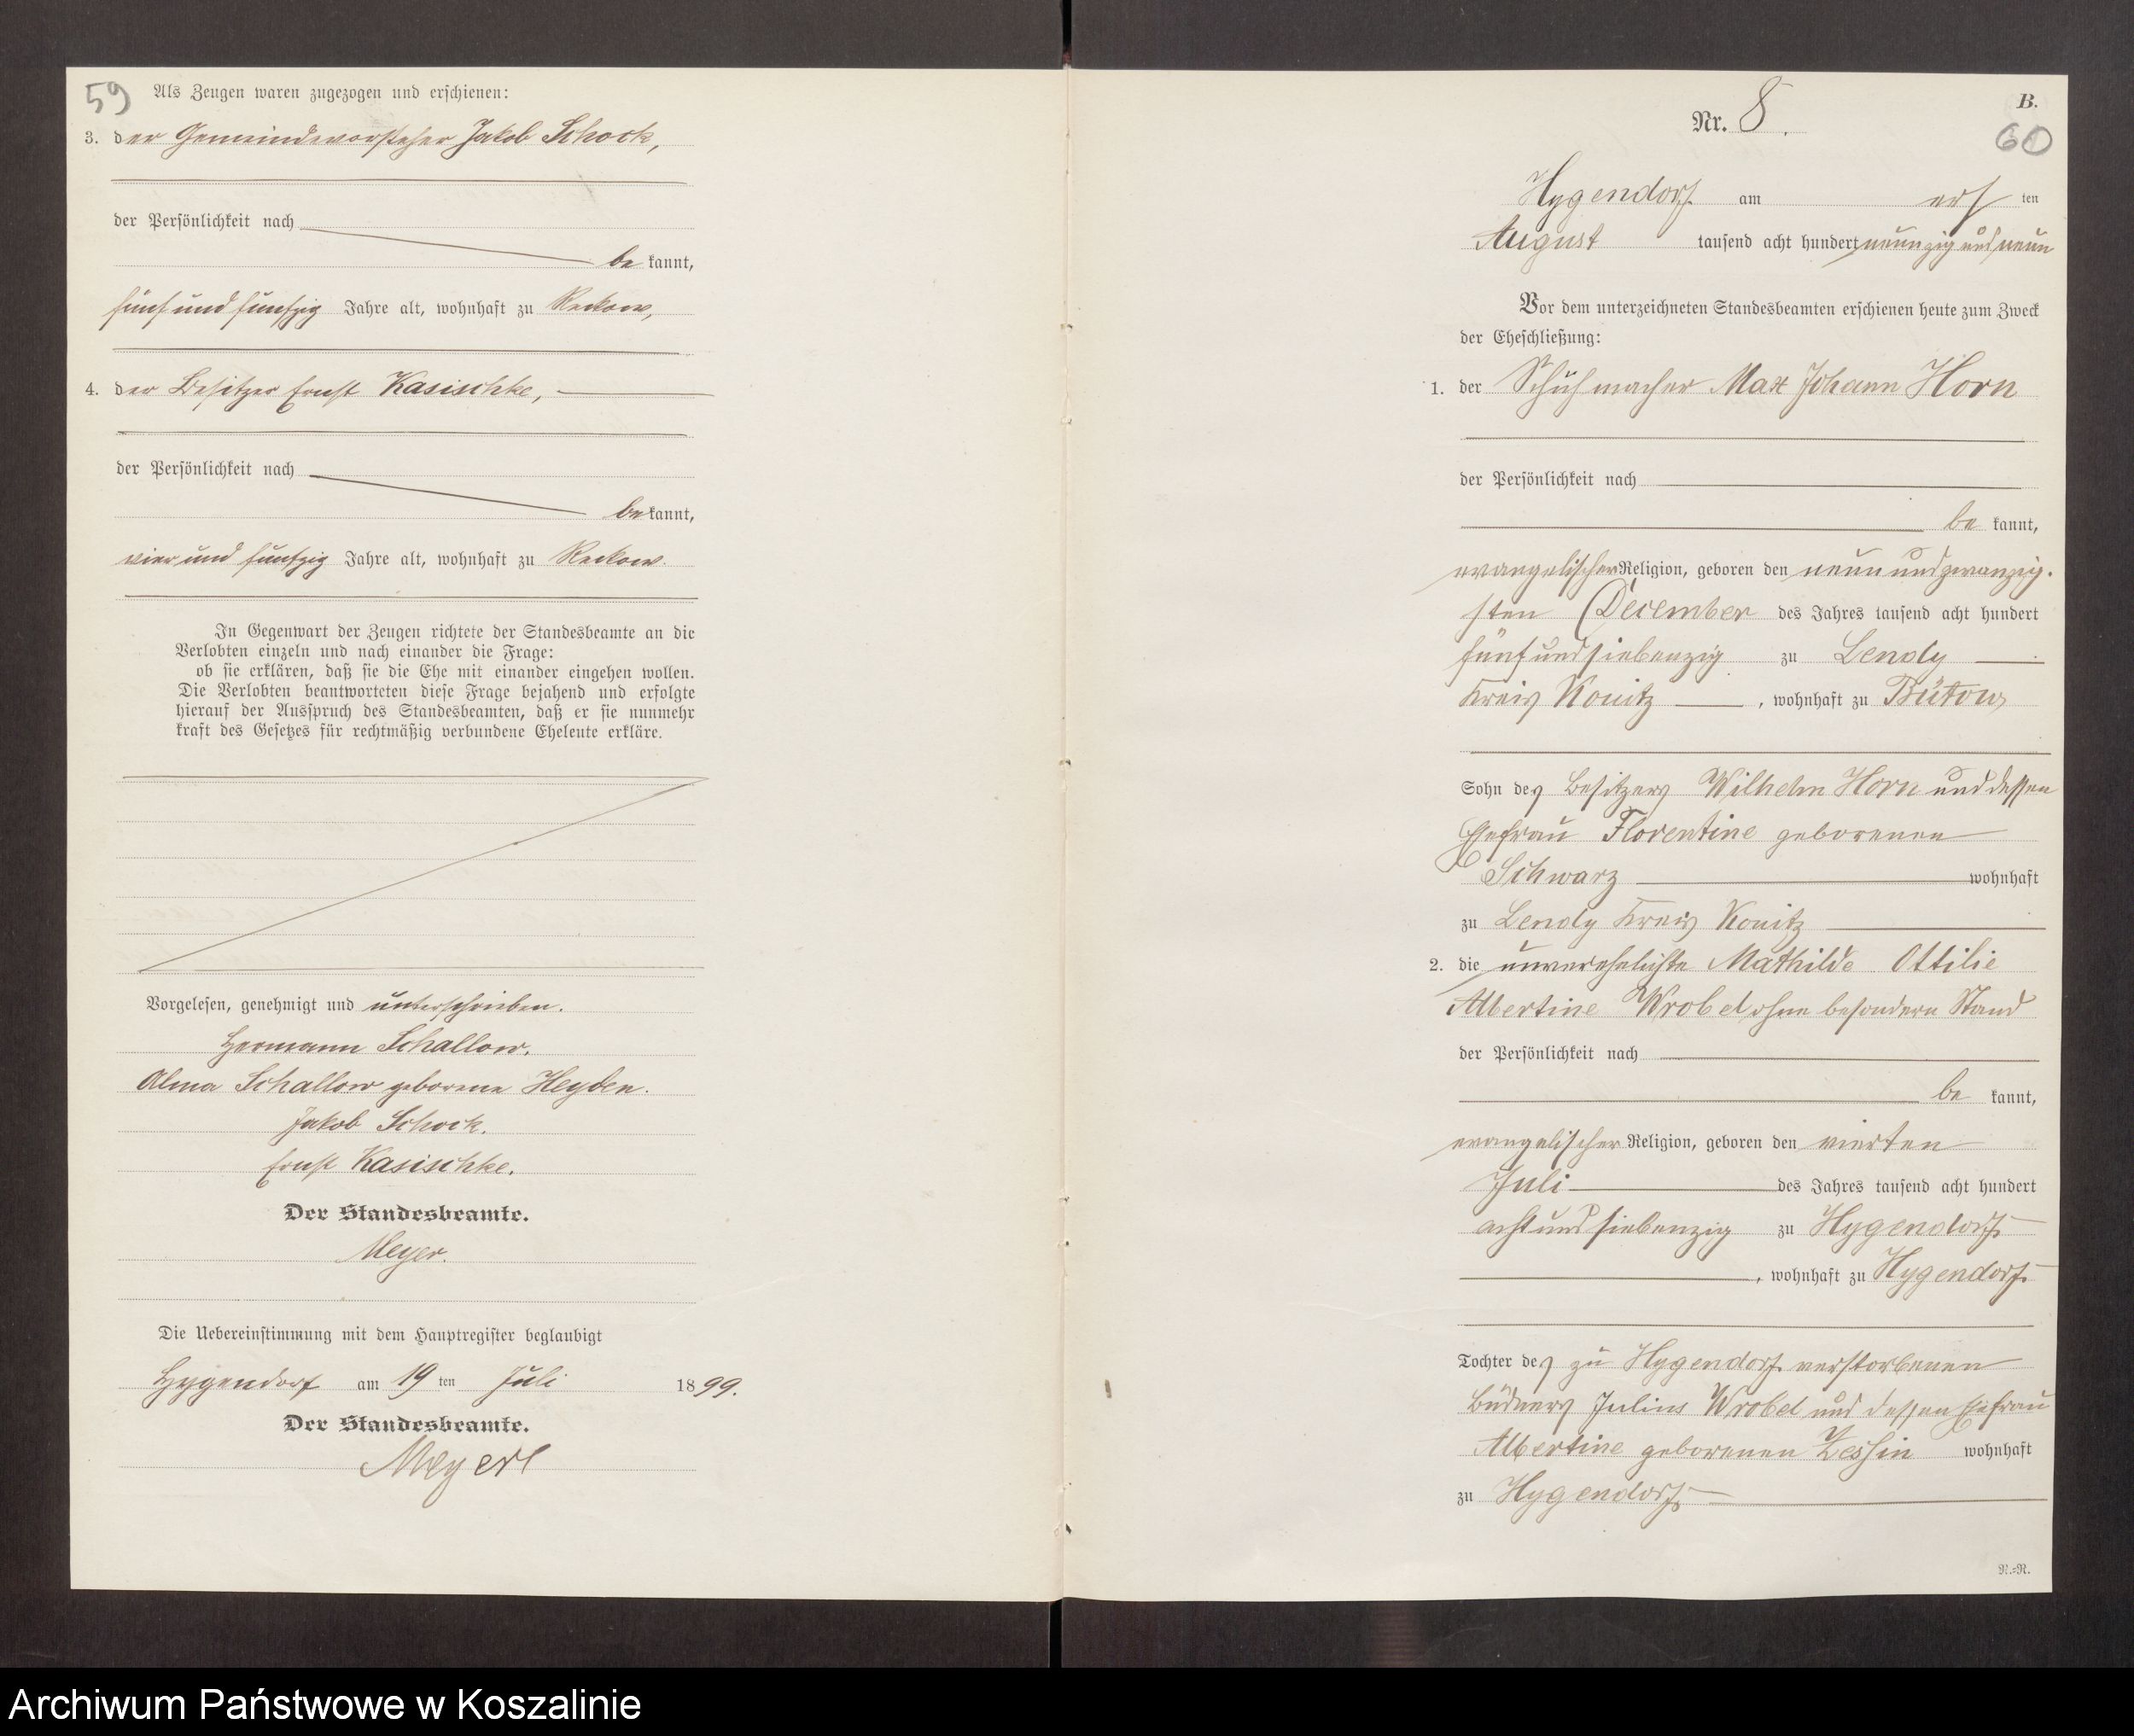 59
Als Zeugen waren zugezogen und erschienen:
3. der Gemeindevorsteher Jakob Schock,
der Persönlichkeit nach
be kannt,
fünf und fünfzig Jahre alt, wohnhaft zu Reckow,
4. der Besitzer Ernst Kasischke,
der Persönlichkeit nach
be kannt,
vier und fünfzig Jahre alt, wohnhaft zu Reckow.
In Gegenwart der Zeugen richtete der Standesbeamte an die
Verlobten einzeln und nach einander die Frage:
ob sie erklären, daß sie die Ehe mit einander eingehen wollen.
Die Verlobten beantworteten diese Frage bejahend und erfolgte
hierauf der Ausspruch des Standesbeamten, daß er sie nunmehr
kraft des Gesetzes für rechtmäßig verbundene Eheleute erkläre.
Vorgelesen, genehmigt und unterschrieben.
Hermann Schallow.
Alma Schallow geborene Heyden.
Jakob Schock.
Ernst Kasischke.
Der Standesbeamte.
Meyer.
Die Uebereinstimmung mit dem Hauptregister beglaubigt
Hygendorf am 19 ten Juli 1899.
Der Standesbeamte.
Meyer
B.
Nr. 8.
60
Hygendorf am ers ten
August tausend acht hundert neunzig und neun
Vor dem unterzeichneten Standesbeamten erschienen heute zum Zweck
der Eheschließung:
1. der Schuhmacher Max Johann Horn
der Persönlichkeit nach
be kannt,
evangelischer Religion, geboren den neun und zwanzig-
sten December des Jahres tausend acht hundert
fünf und siebenzig zu Lendy
Kreis Konitz, wohnhaft zu Bütow
Sohn des Besitzers Wilhelm Horn und dessen
Ehefrau Florentine geborenen
Schwarz wohnhaft
zu Lendy Kreis Konitz
2. die unverehelichte Mathilde Ottilie
Albertine Wrobel ohne besondern Stand
der Persönlichkeit nach
be kannt,
evangelischer Religion, geboren den vierten
Juli des Jahres tausend acht hundert
acht und siebenzig zu Hygendorf
, wohnhaft zu Hygendorf
Tochter des zu Hygendorf verstorbenen
Büdners Julius Wrobel und dessen Ehefrau
Albertine geborenen Zessin wohnhaft
zu Hygendorf
N.=N.
Archiwum Państwowe w Koszalinie